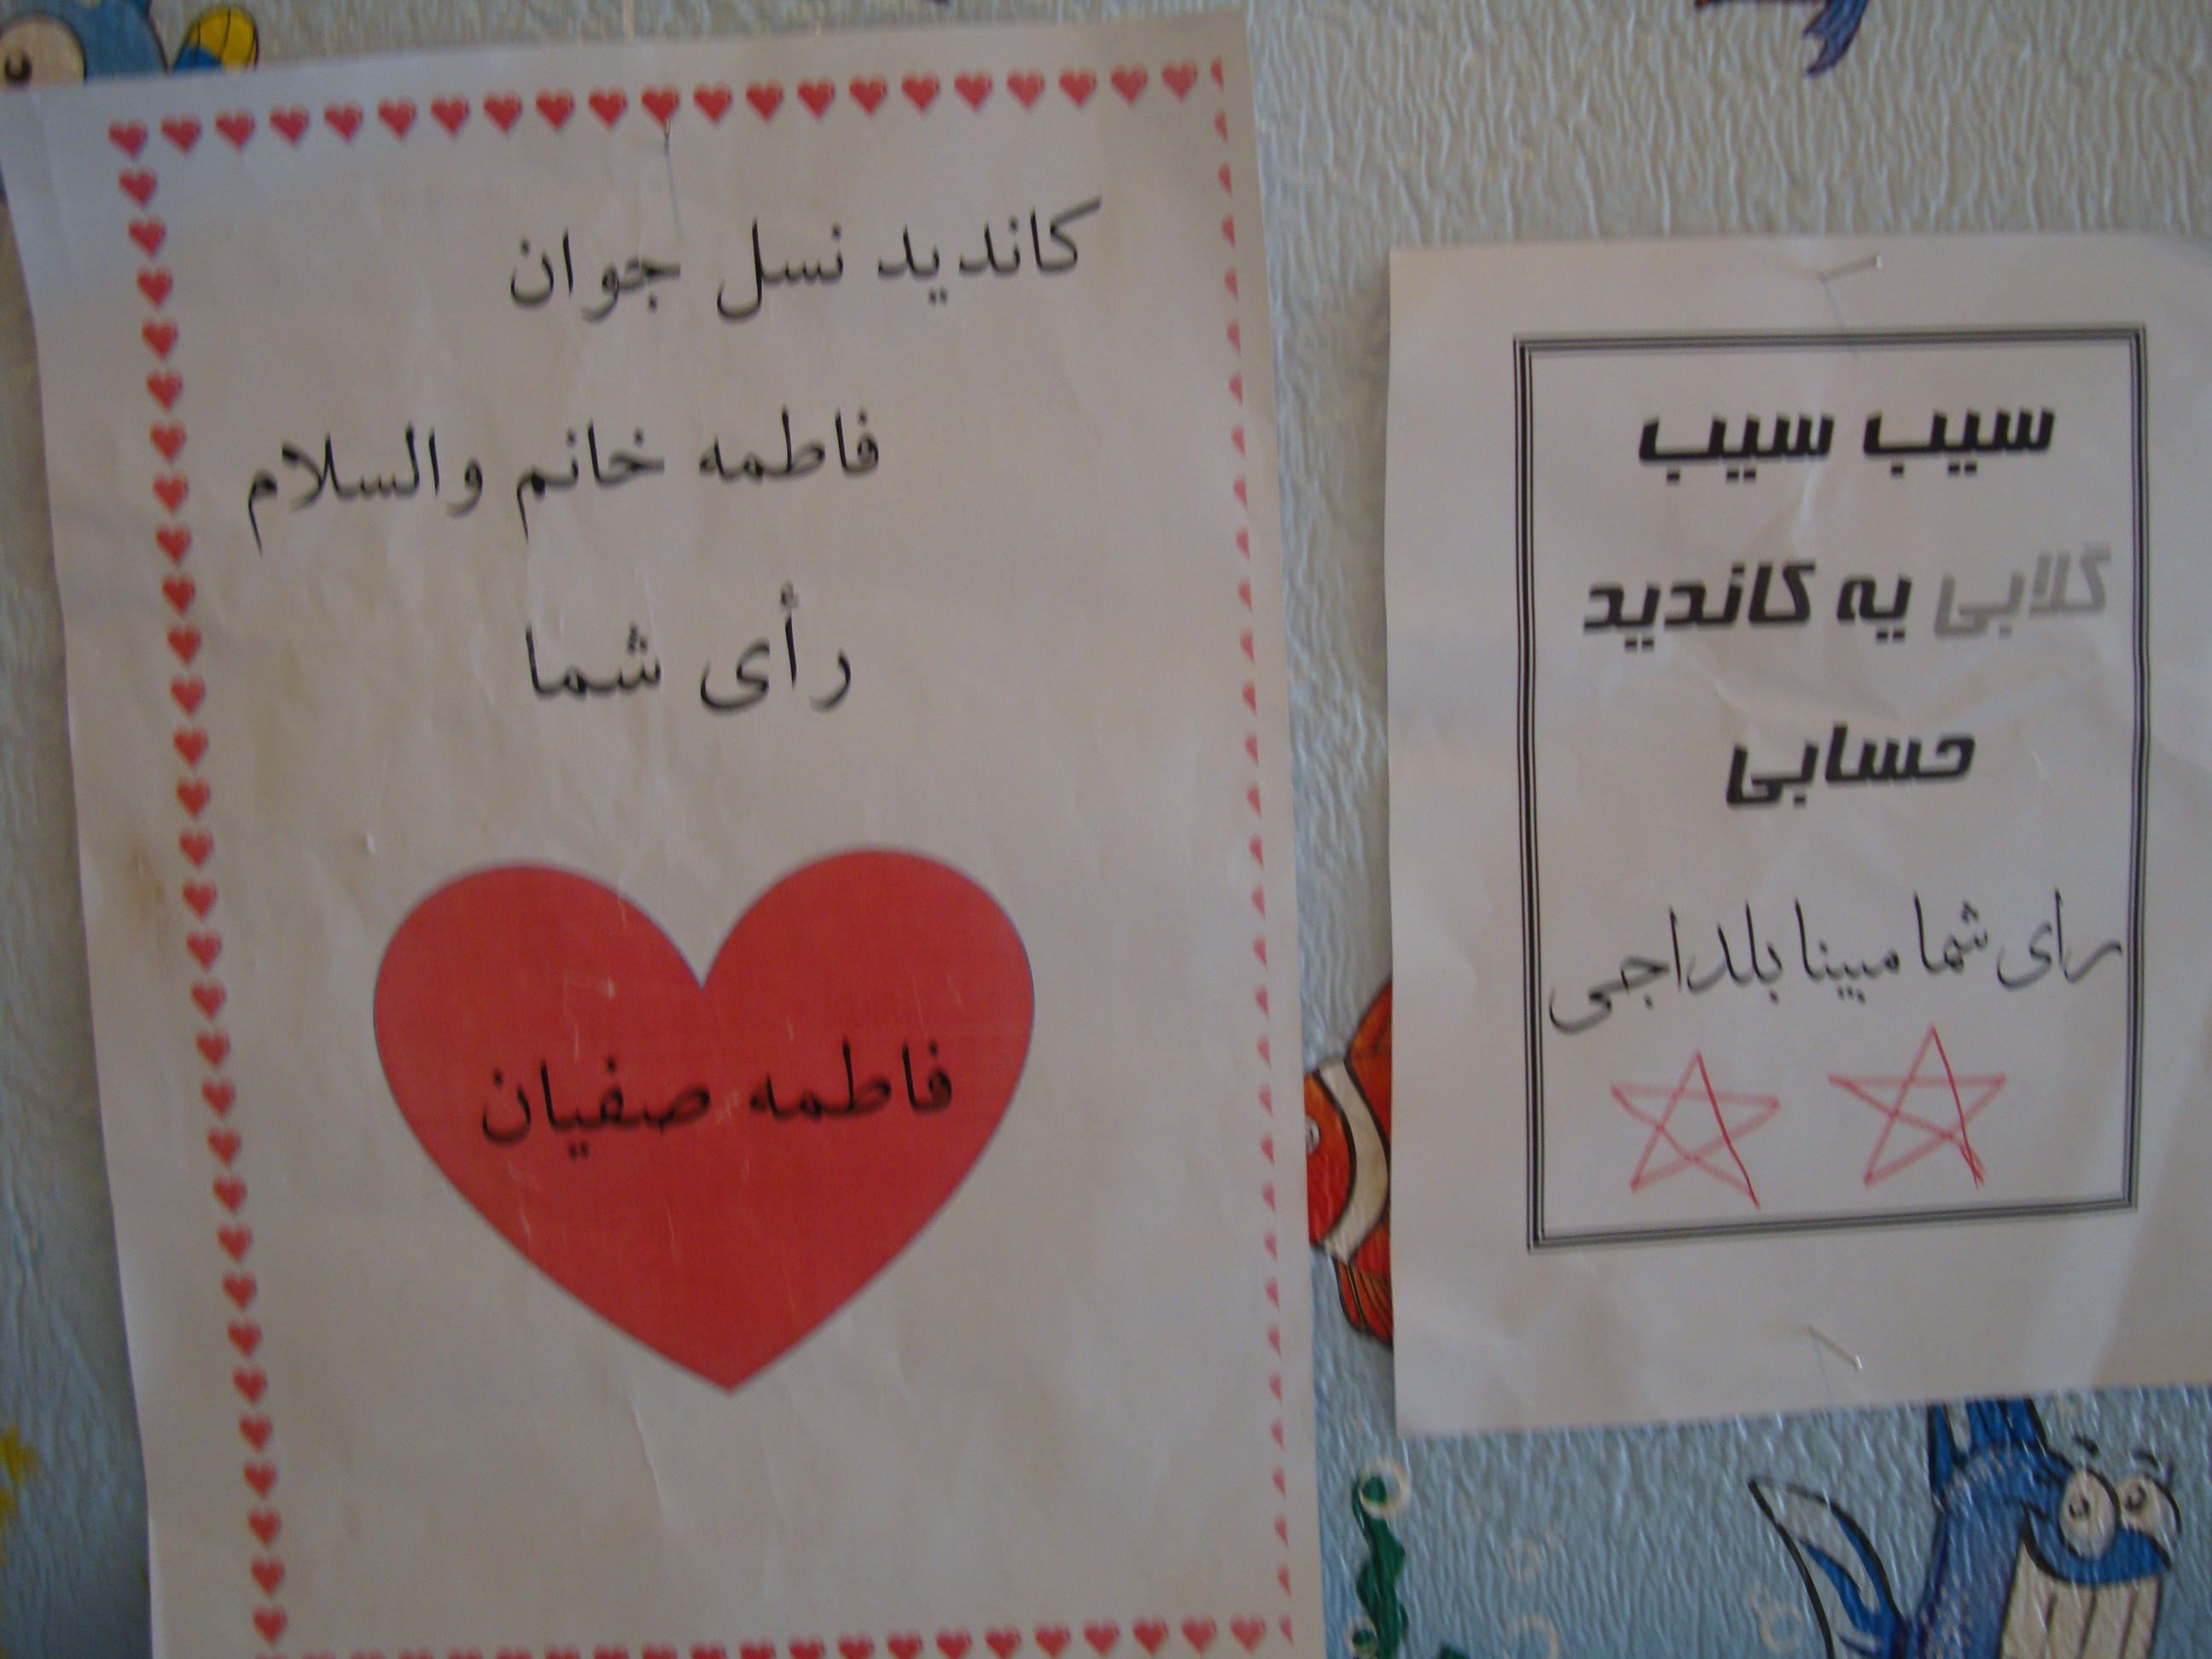 کاندید نسل جوان
فاطمه خانم والسلام
رأی شما
فاطمه صفیان
سیب سیب
گلابی یه کاندید
حسابی
رای شما مبینا بلداجی